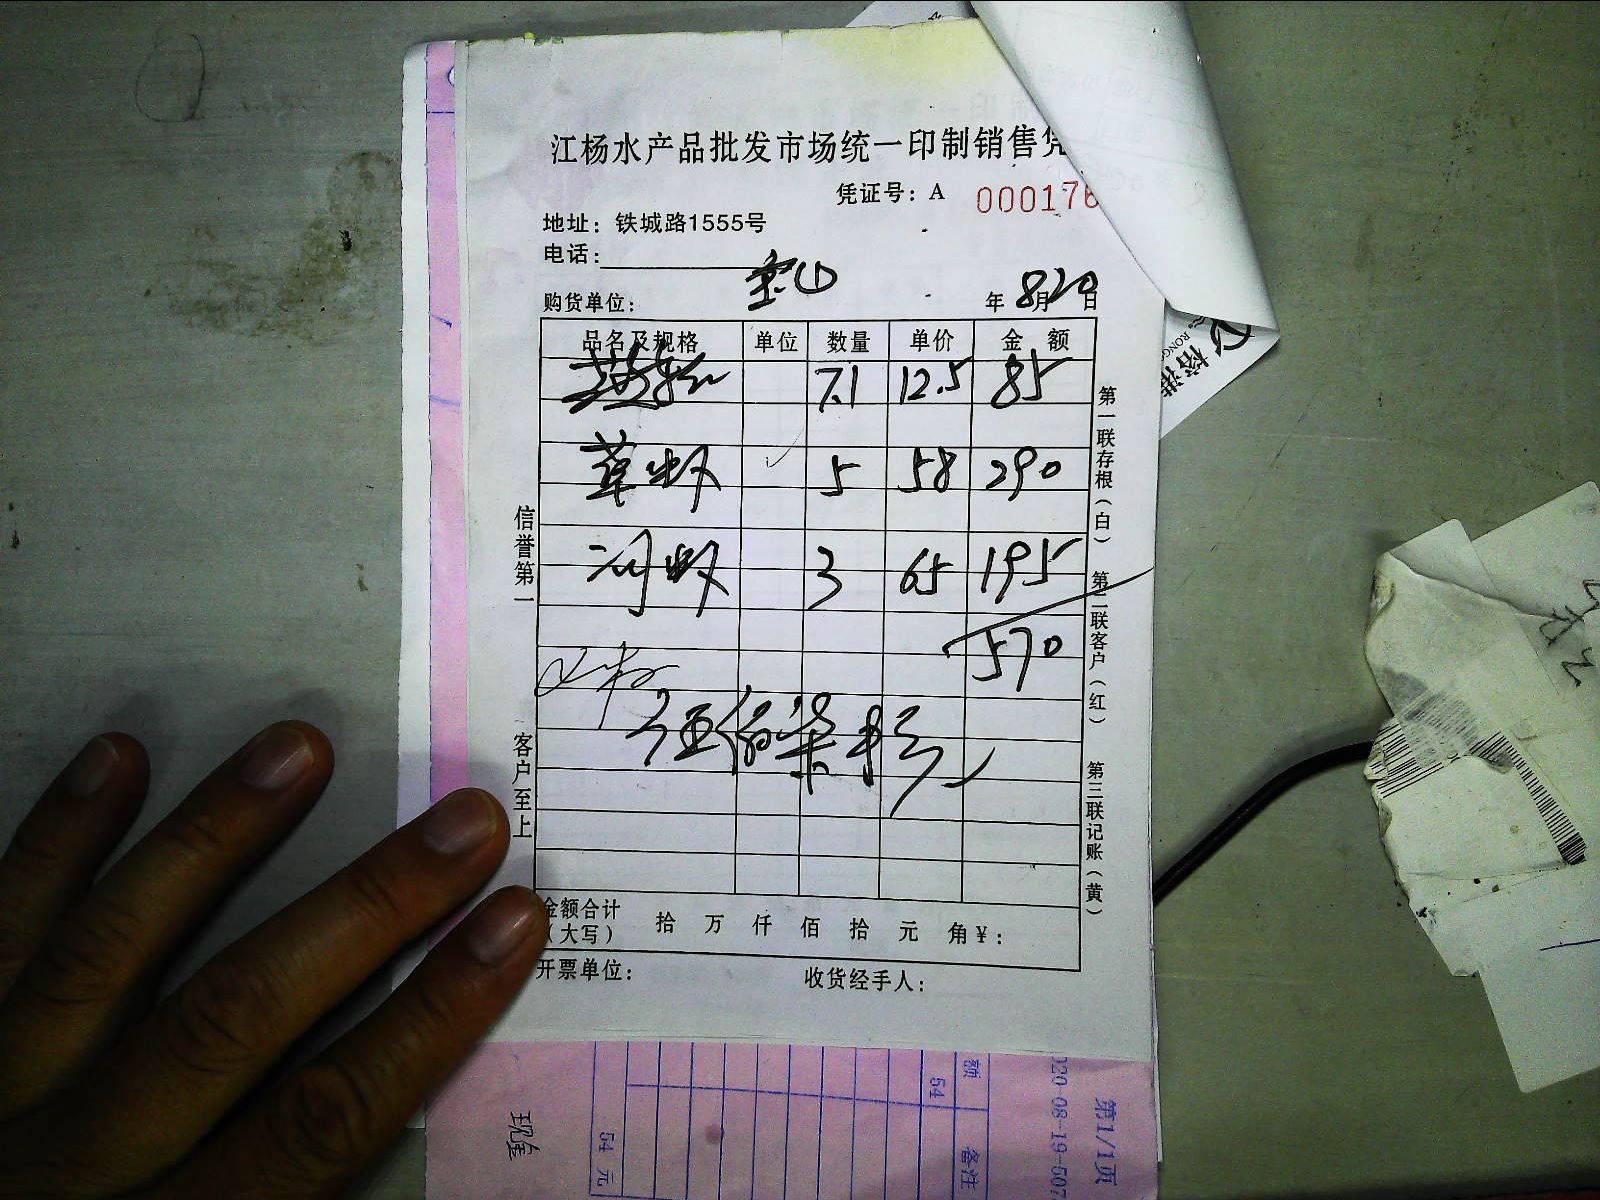 江杨水产品批发市场统一印制销售凭
凭证号：A 000176
地址：铁城路1555号
电话：
购货单位： 宝山 年 8月20日
品名及规格 单位 数量 单价 金 额
7.1 12.5 85
草虾 5 58 290
河虾 3 65 195
570
伍佰柒拾元
金额合计
（大写） 拾 万 仟 佰 拾 元 角 ¥：
开票单位： 收货经手人：
信誉第一 客户至上
第一联存根（白） 第二联客户（红） 第三联记账（黄）
额
54
备注
54 元
020-08-19-507
第1/1页